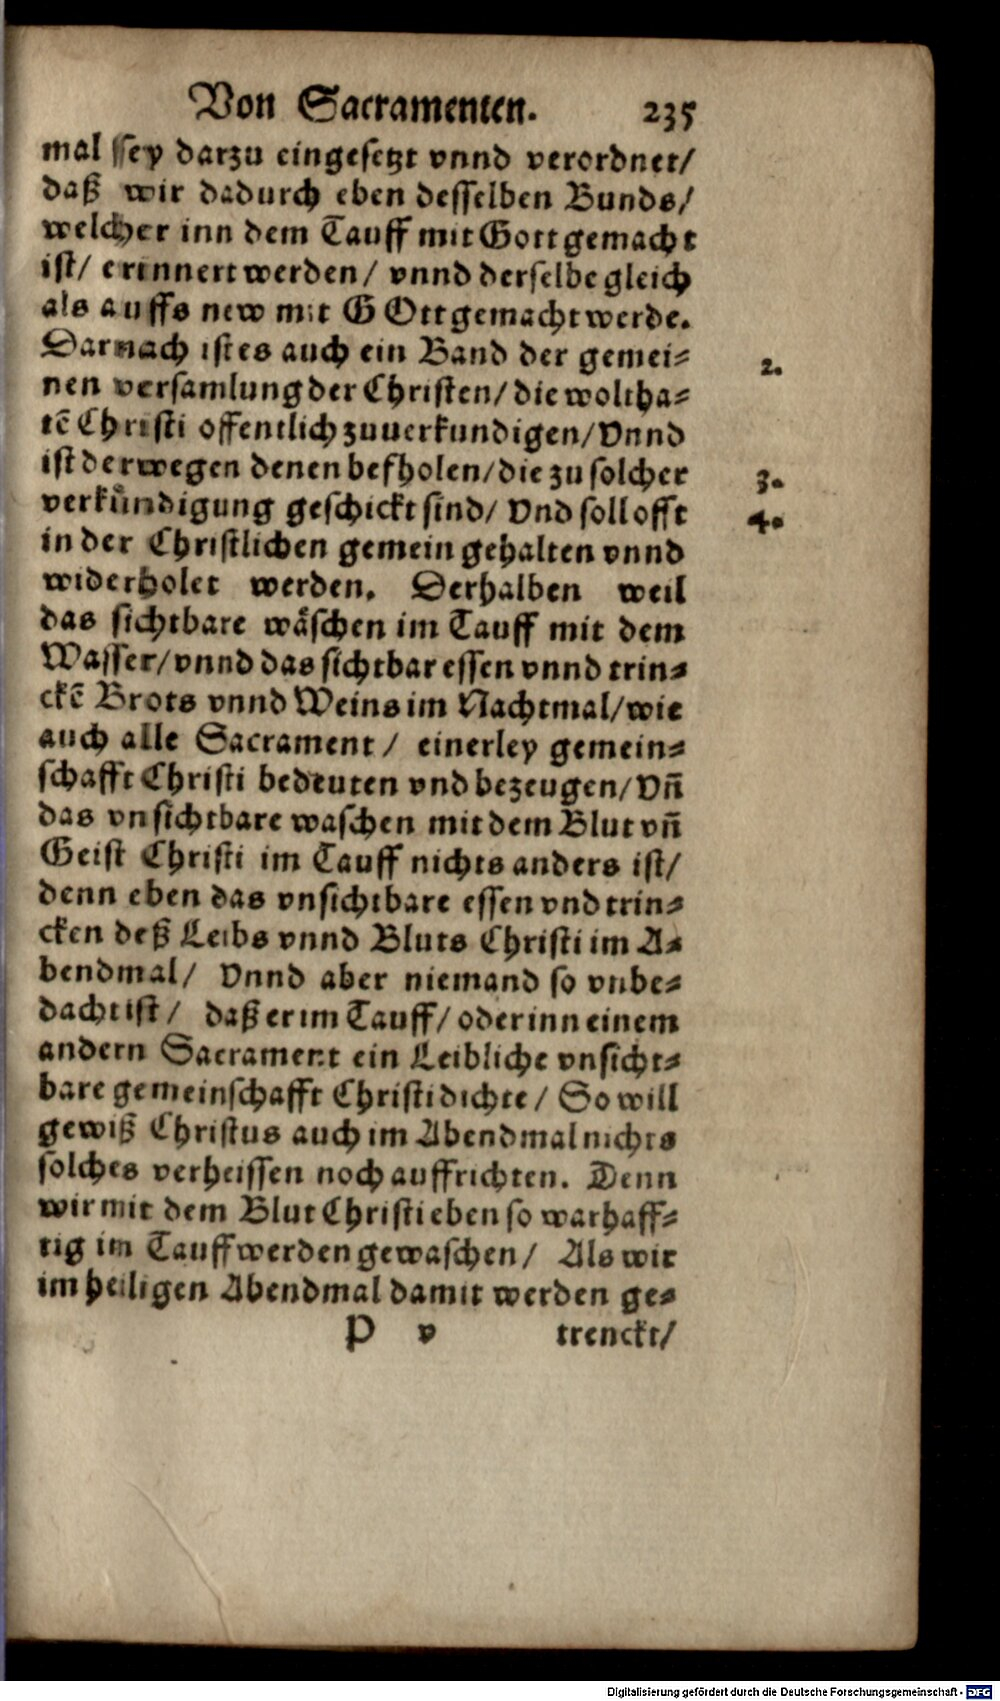 Von Sacramenten. 235
mal ſſey darzu eingeſetzt vnnd verordnet/
daß wir dadurch eben deſſelben Bunds/
welcher inn dem Tauff mit Gott gemacht
iſt/ erinnert werden/ vnnd derſelbe gleich
als auffs new mit GOtt gemacht werde.
Darnach iſt es auch ein Band der gemei⸗ 2.
nen verſamlung der Chriſten/ die woltha⸗
tē Chriſti offentlich zuuerkundigen/ Vnnd
iſt derwegen denen befholen/ die zu ſolcher 3.
verkündigung geſchickt ſind/ Vnd ſoll offt 4.
in der Chriſtlichen gemein gehalten vnnd
widerholet werden. Derhalben weil
das ſichtbare wäſchen im Tauff mit dem
Waſſer/ vnnd das ſichtbar eſſen vnnd trin⸗
ckē Brots vnnd Weins im Nachtmal/ wie
auch alle Sacrament/ einerley gemein⸗
ſchafft Chriſti bedeuten vnd bezeugen/ Vñ
das vnſichtbare waſchen mit dem Blut vñ
Geiſt Chriſti im Tauff nichts anders iſt/
denn eben das vnſichtbare eſſen vnd trin⸗
cken deß Leibs vnnd Bluts Chriſti im A⸗
bendmal/ Vnnd aber niemand ſo vnbe⸗
dacht iſt/ daß er im Tauff/ oder inn einem
andern Sacrament ein Leibliche vnſicht⸗
bare gemeinſchafft Chriſti dichte/ So will
gewiß Chriſtus auch im Abendmal nichts
ſolches verheiſſen noch auffrichten. Denn
wir mit dem Blut Chriſti eben ſo warhaff⸗
tig im Tauff werden gewaſchen/ Als wir
im heiligen Abendmal damit werden ge⸗
P v trenckt/
Digitalisierung gefördert durch die Deutsche Forschungsgemeinschaft - DFG